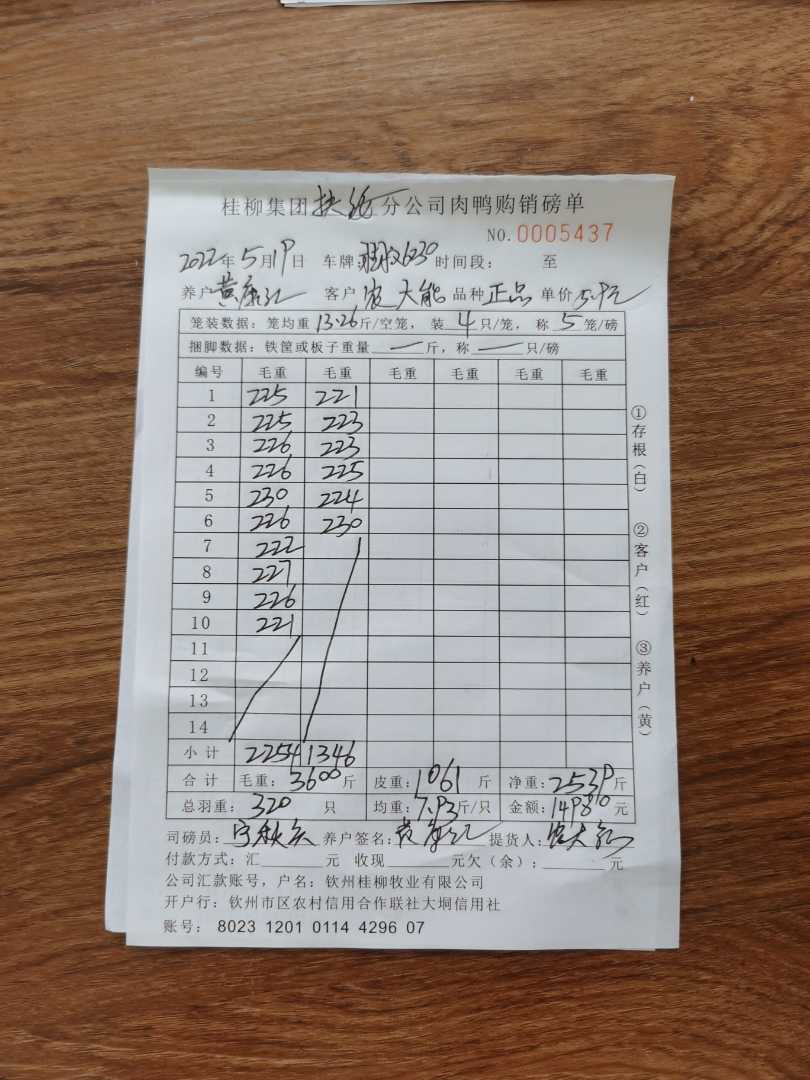 桂柳集团扶绥分公司肉鸭购销磅单
NO.0005437
2022年5月19日 车牌: 6230 时间段: 至
养户黄康汇 客户农大能 品种正品 单价5.9元
笼装数据: 笼均重13.26斤/空笼, 装4只/笼, 称5笼/磅
捆脚数据: 铁筐或板子重量一斤, 称一只/磅
编号 毛重 毛重 毛重 毛重 毛重 毛重
1 225 221
2 225 223
3 226 223
4 226 225
5 230 224
6 226 230
7 222
8 227
9 226
10 221
11
12
13
14
小计 2254 1346
合计 毛重: 3600斤 皮重: 1061斤 净重: 2539斤
总羽重: 320只 均重: 7.93斤/只 金额: 14980元
司磅员: 养户签名: 黄康汇 提货人: 农大能
付款方式: 汇 元 收现 元欠(余): 元
公司汇款账号, 户名: 钦州桂柳牧业有限公司
开户行: 钦州市区农村信用合作联社大垌信用社
账号: 8023 1201 0114 4296 07
①存根(白) ②客户(红) ③养户(黄)